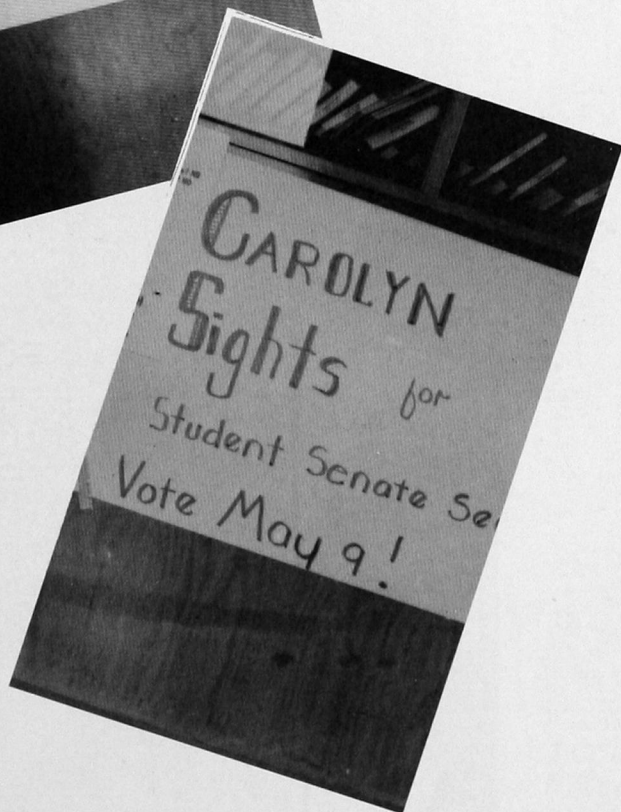 CAROLYN
Sights for
Student Senate Se
Vote May 9!